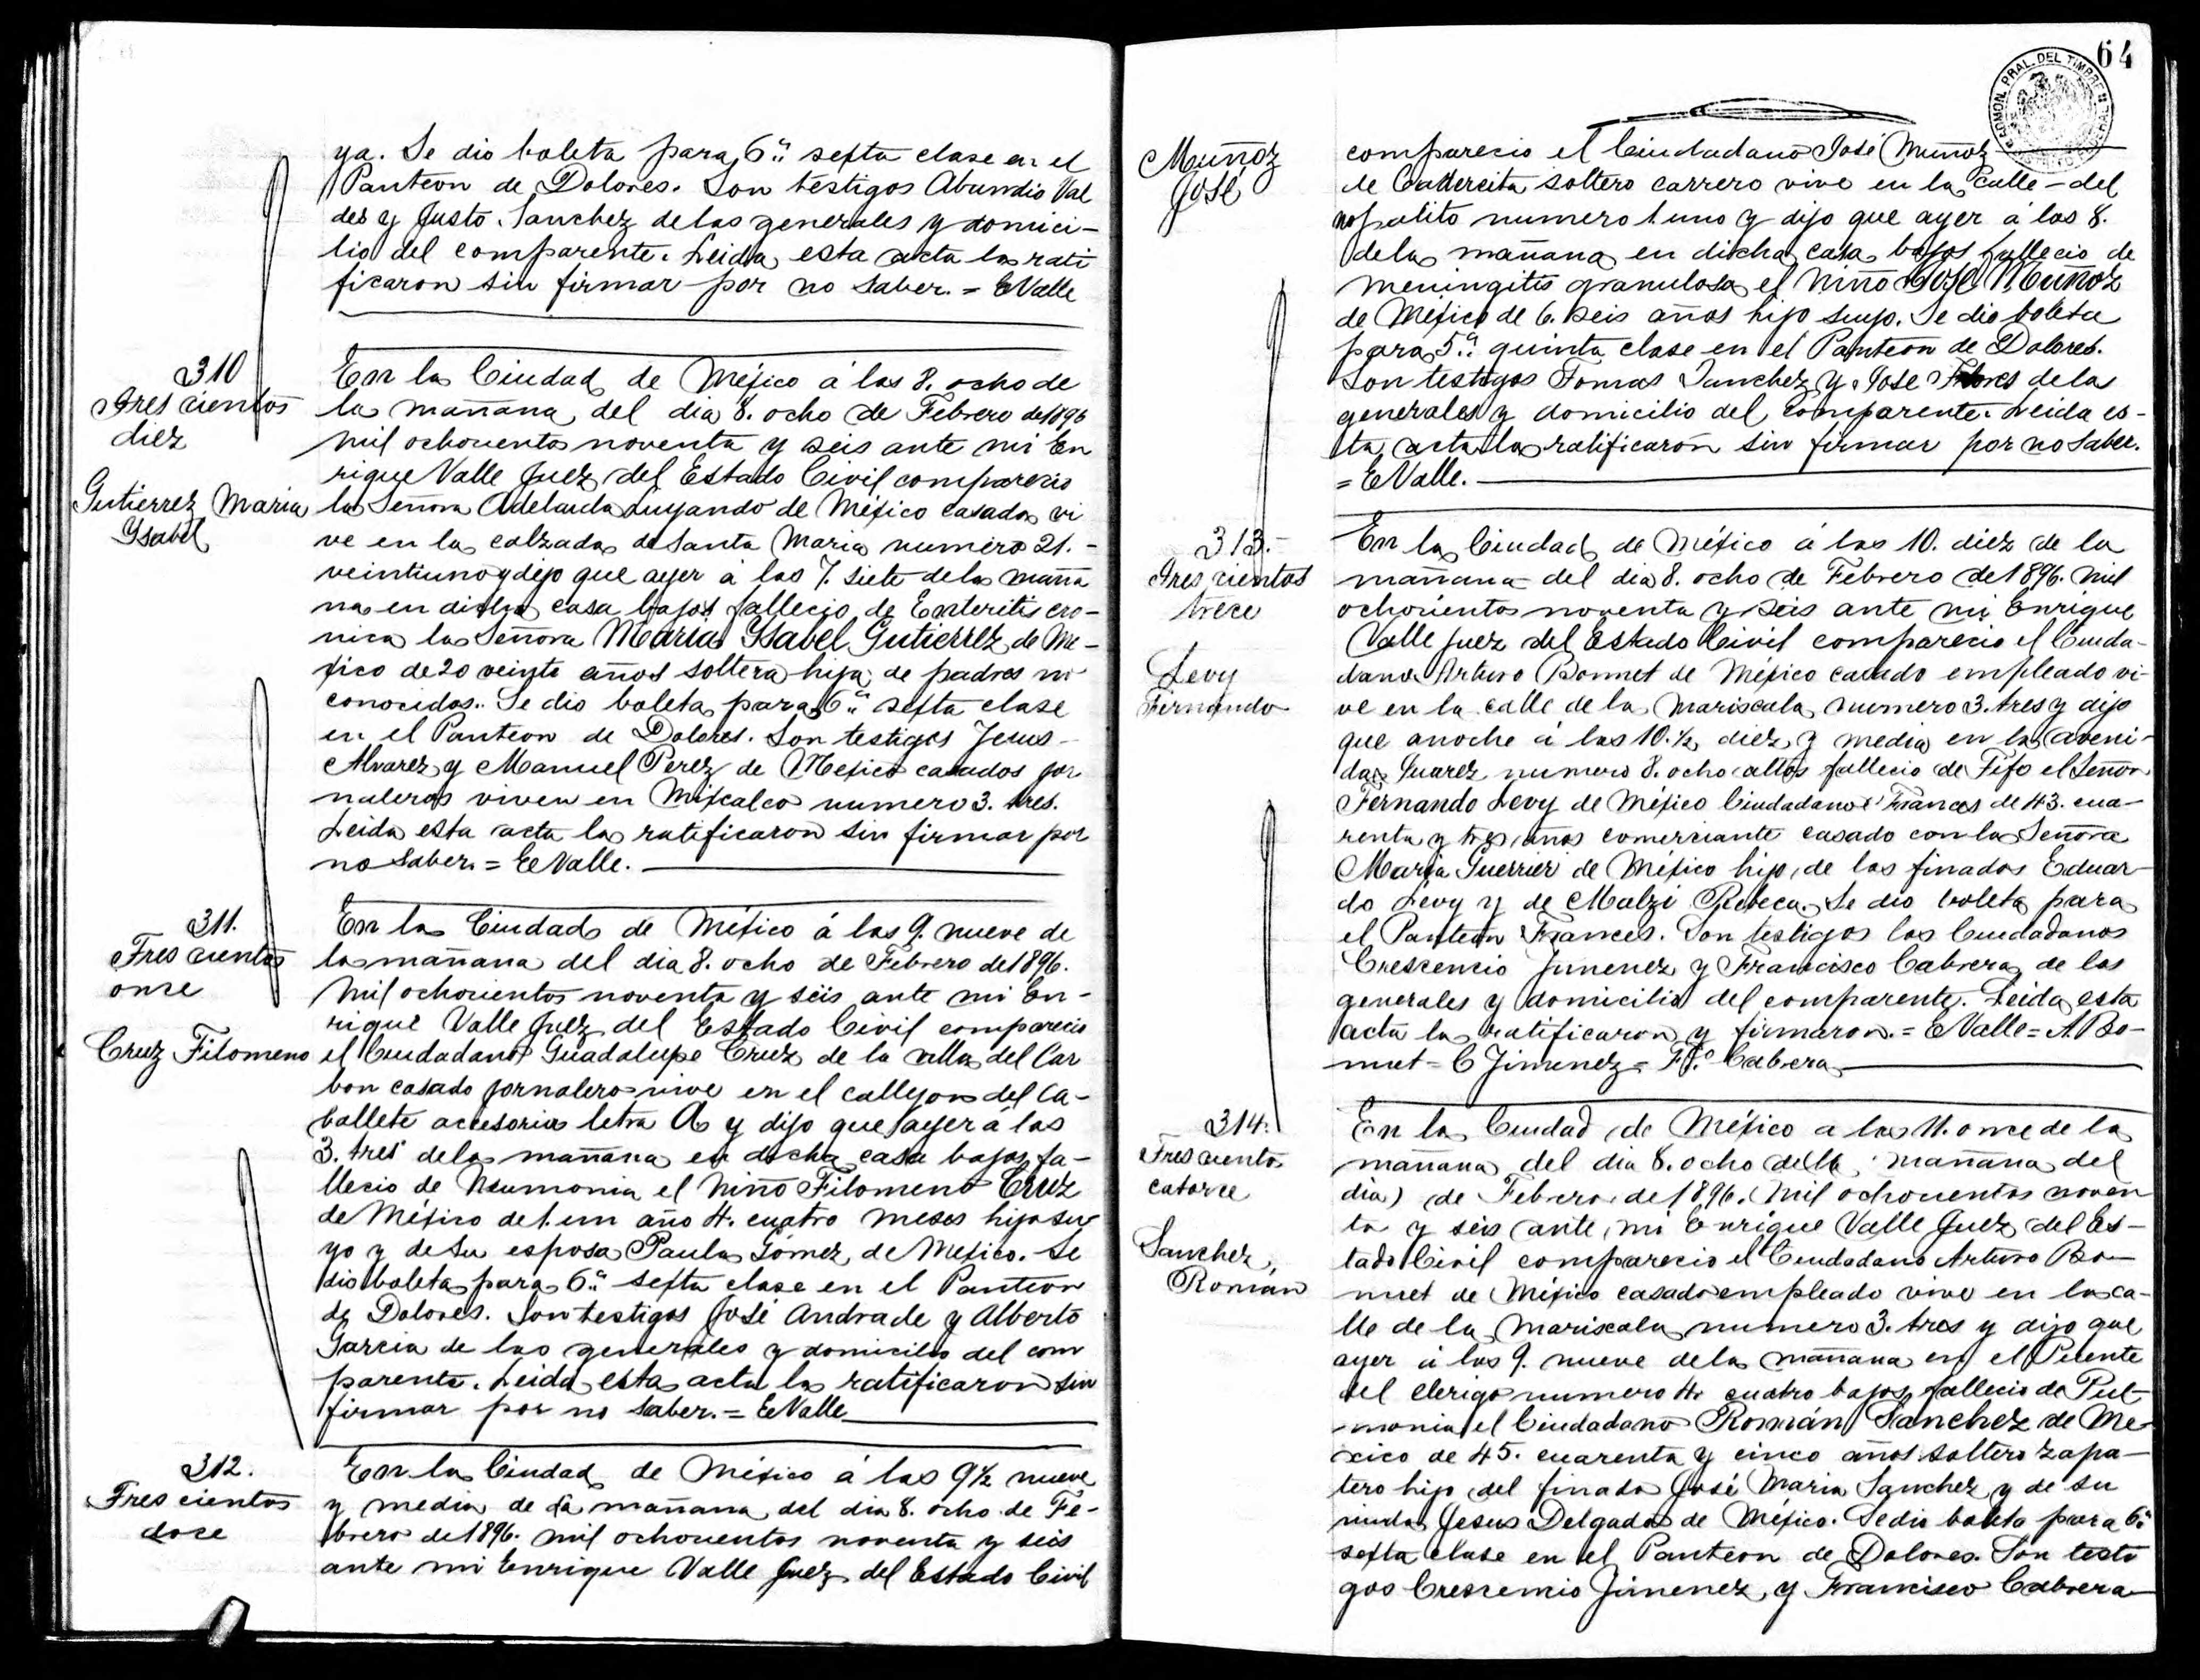 ya. Se dio boleta para 6ª sexta clase en el
Panteon de Dolores. Son testigos Abundio Val
des y Justo Sanchez de las generales y domici-
lio del comparente. Leida esta acta la rati
ficaron sin firmar por no saber. = EValle
310
Tres cientos
diez
Gutierrez Maria
Ysabel
En la Ciudad de México á las 8. ocho de
la mañana del dia 8. ocho de Febrero de 1896
mil ochocientos noventa y seis ante mi En
rique Valle Juez del Estado Civil comparecio
la Señora Adelaida Luyando de México casada vi
ve en la calzada de Santa Maria numero 21. -
veintiuno y dijo que ayer á las 7. siete de la maña
na en dicha casa bajos fallecio de Enteritis cro-
nica la Señora Maria Ysabel Gutierrez de Me-
xico de 20 veinte años soltera hija de padres no
conocidos. Se dio boleta para 6ª sexta clase
en el Panteon de Dolores. Son testigos Jesus
Alvarez y Manuel Perez de Mexico casados jor
naleros viven en Mixcalco numero 3. tres.
Leida esta acta la ratificaron sin firmar por
no saber. = EValle.
311.
Tres cientos
once
Cruz Filomeno
En la Ciudad de México á las 9. nueve de
la mañana del dia 8. ocho de Febrero de 1896.
Mil ochocientos noventa y seis ante mi En-
rique Valle Juez del Estado Civil comparecio
el Ciudadano Guadalupe Cruz de la villa del Car
bon casado jornalero vive en el callejon del Ca-
ballete accesoria letra A y dijo que ayer á las
3. tres de la mañana en dicha casa bajos fa-
llecio de Neumonia el niño Filomeno Cruz
de México de 1. un año 4. cuatro meses hijo su
yo y de su esposa Paula Gómez de Mexico. Se
dio boleta para 6ª sexta clase en el Panteon
de Dolores. Son testigos José Andrade y Alberto
Garcia de las generales y domicilio del com
parente. Leida esta acta la ratificaron sin
firmar por no saber. = EValle
312.
Tres cientos
doce
En la Ciudad de México á las 9½ nueve
y media de la mañana del dia 8. ocho de Fe-
brero de 1896. mil ochocientos noventa y seis
ante mi Enrique Valle Juez del Estado Civil
64
ADMON. PRAL. DEL TIMBRE
Muñoz
José
comparecio el Ciudadano José Muñoz
de soltero carrero vive en la calle - del
nopalito numero 1. uno y dijo que ayer á las 8.
de la mañana en dicha casa bajos fallecio de
meningitis granulosa el niño José Muñoz
de México de 6. seis años hijo suyo. Se dio boleta
para 5ª quinta clase en el Panteon de Dolores.
Son testigos Tomas Sanchez y Jose Flores de la
generales y domicilio del comparente. Leida es-
ta acta la ratificaron sin firmar por no saber.
= EValle.
313.-
Tres cientos
trece
Levy
Fernando
En la Ciudad de México á las 10. diez de la
mañana del dia 8. ocho de Febrero de 1896. mil
ochocientos noventa y seis ante mi Enrique
Valle Juez del Estado Civil comparecio el Ciuda-
dano Arturo Bonnet de México casado empleado vi-
ve en la calle de la Mariscala numero 3. tres y dijo
que anoche á las 10.½ diez y media en la aveni-
da Juarez numero 8. ocho altos fallecio de Tifo el Señor
Fernando Levy de México Ciudadano Frances de 43. cua-
renta y tres años comerciante casado con la Señora
Maria Guerrier de México hijo de los finados Eduar
do Levy y de Malzi Rebeca. Se dio boleta para
el Panteon Frances. Son testigos los Ciudadanos
Crescencio Jimenez y Francisco Cabrera de las
generales y domicilio del comparente. Leida esta
acta la ratificaron y firmaron. = EValle = A. Bo-
nnet = C Jimenez = Fº Cabrera
314.
Tres cientos
catorce
Sanchez,
Román
En la Ciudad de México a las 11. once de la
mañana del dia 8. ocho (de la mañana del
dia) de Febrero de 1896. Mil ochocientos noven
ta y seis ante mi Enrique Valle Juez del Es-
tado Civil comparecio el Ciudadano Arturo Bo-
nnet de México casado empleado vive en la ca-
lle de la Mariscala numero 3. tres y dijo que
ayer á las 9. nueve de la mañana en el Puente
del Clerigo numero 4. cuatro bajos fallecio de Pul-
monia el Ciudadano Román Sanchez de Me-
xico de 45. cuarenta y cinco años soltero zapa-
tero hijo del finado José Maria Sanchez y de su
viuda Jesus Delgado de México. Se dio boleta para 6ª
sexta clase en el Panteon de Dolores. Son testi
gos Crescencio Jimenez y Francisco Cabrera